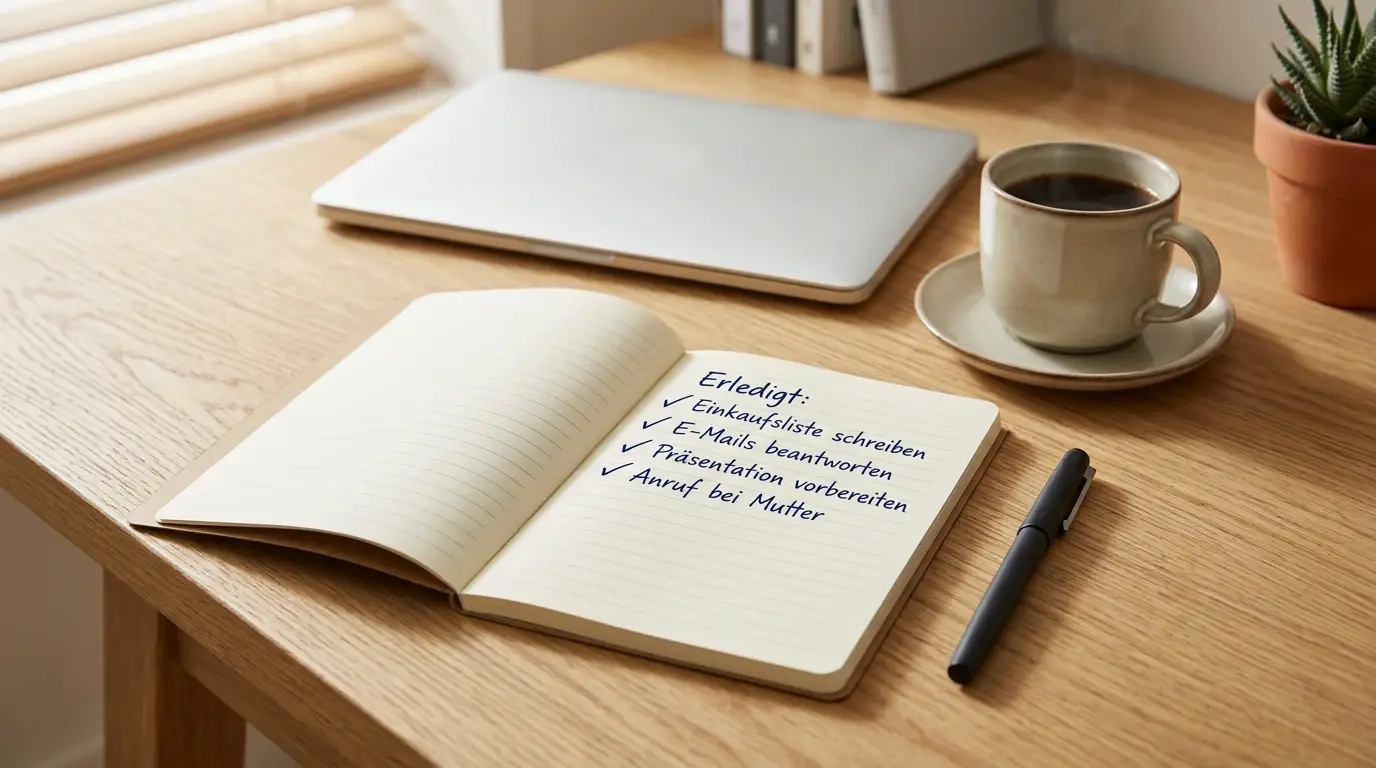 Erledigt:
✓ Einkaufsliste schreiben
✓ E-Mails beantworten
✓ Präsentation vorbereiten
✓ Anruf bei Mutter